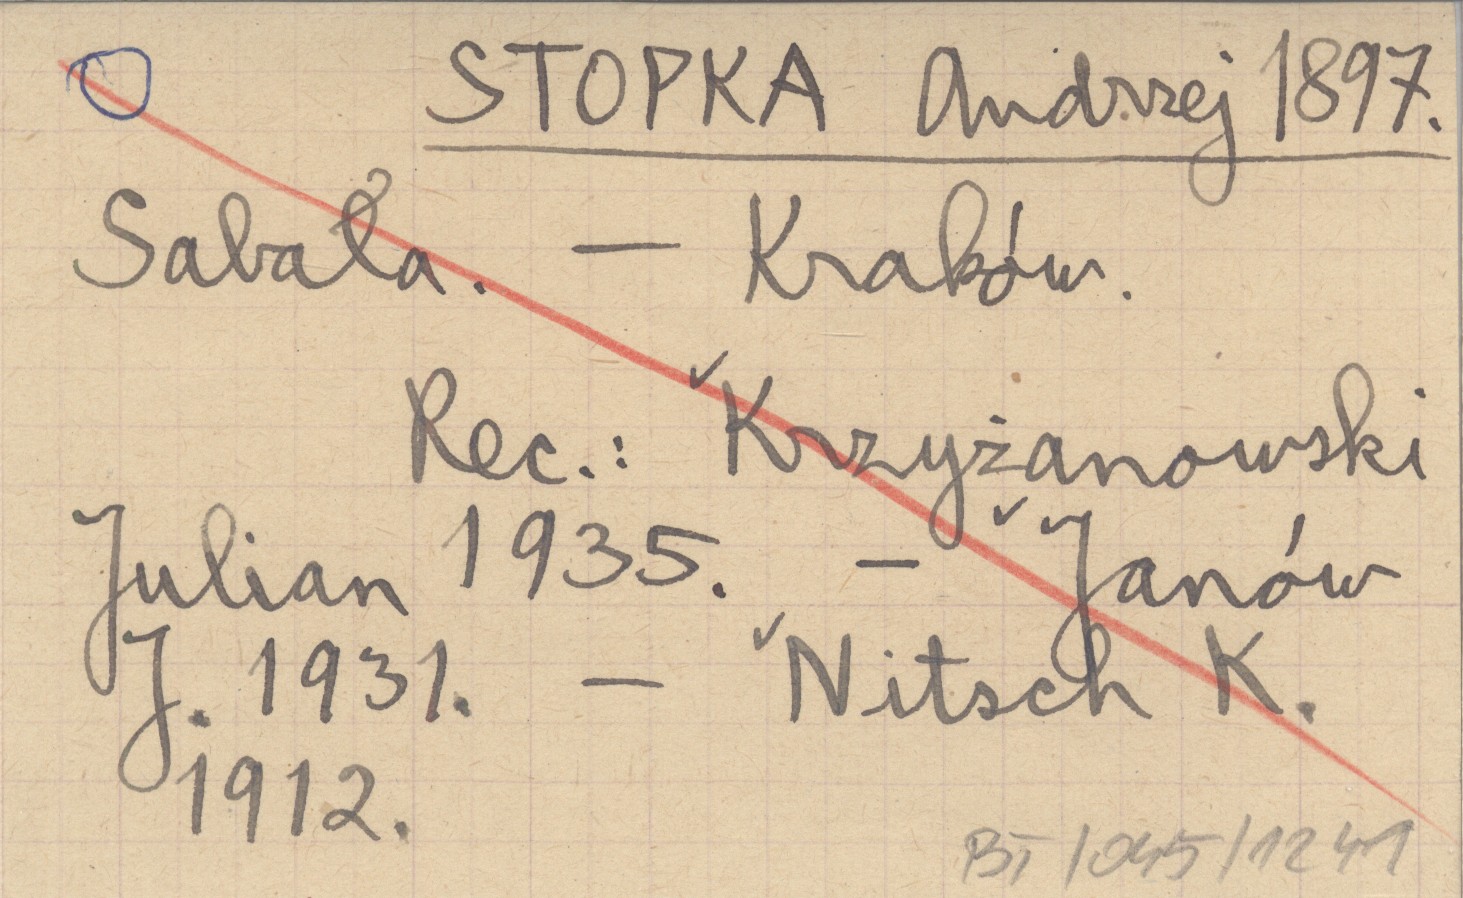 STOPKA Andrzej 1897.
Sabała. — Kraków.
Rec.: Krzyżanowski
Julian 1935. — Janów
J. 1931. — Nitsch K.
1912.
BT/045/1241